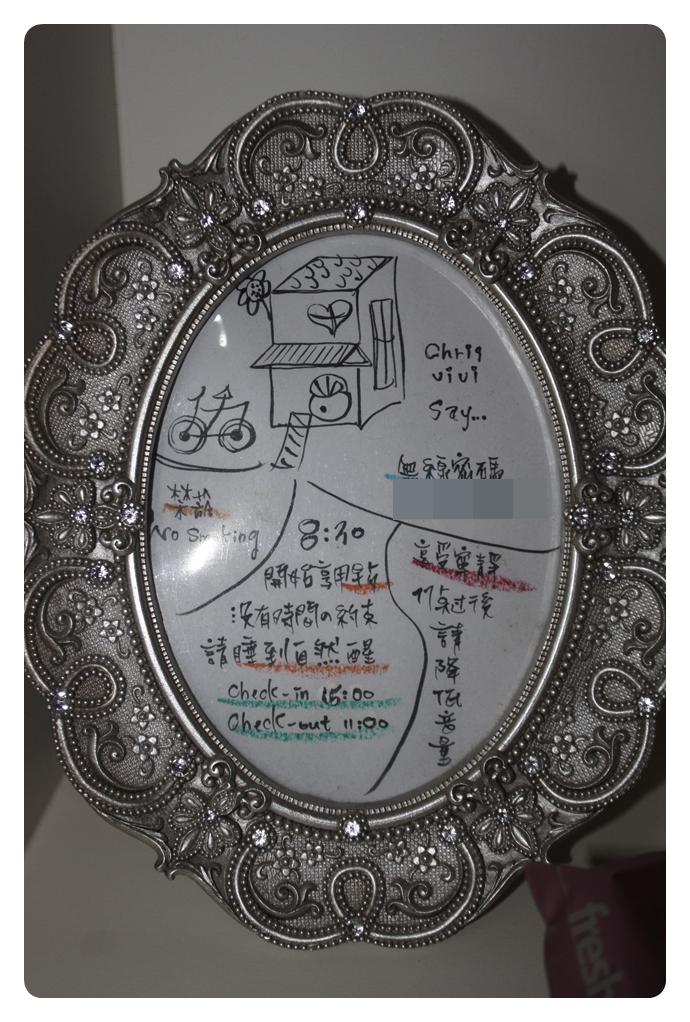 Chris
vivi
Say...
無線密碼
禁菸
No Smoking
8:30
開始享用早餐
沒有時間の約束
請睡到自然醒
Check-in 15:00
Check-out 11:00
享受寧靜
11点过後
請
降
低
音
量
fresh